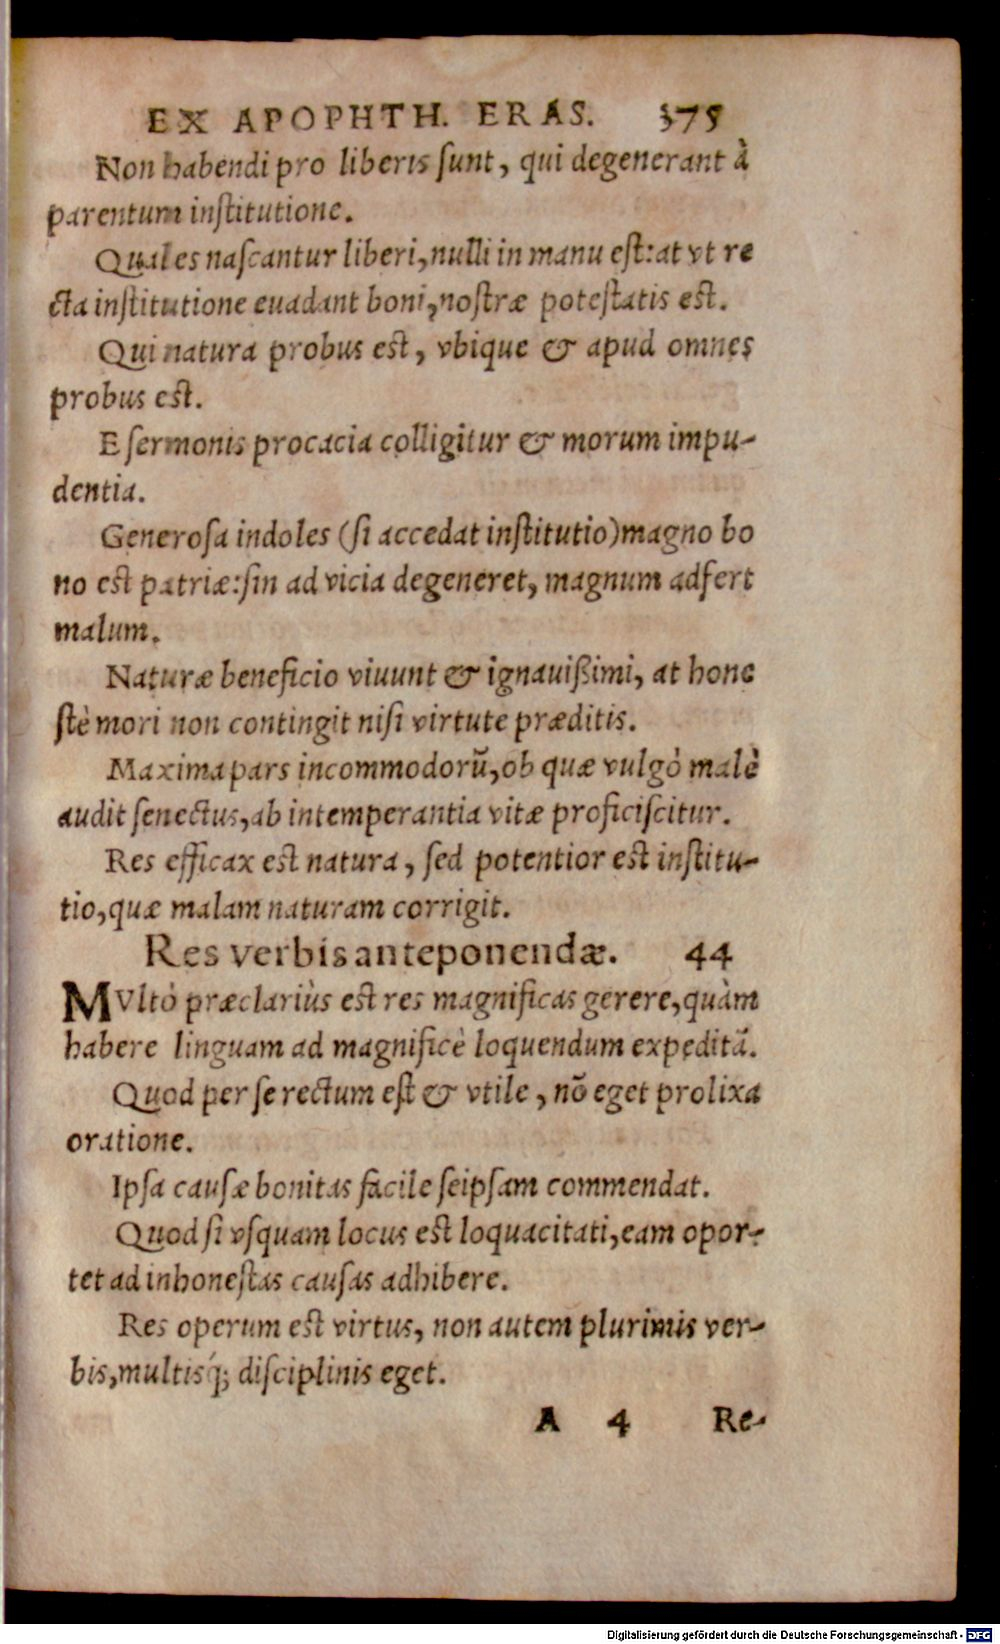 EX APOPHTH. ERAS. 375
Non habendi pro liberis ſunt, qui degenerant à
parentum inſtitutione.
Quales naſcantur liberi, nulli in manu eſt: at vt re
cta inſtitutione euadant boni, noſtræ poteſtatis eſt.
Qui natura probus eſt, vbique & apud omnes
probus eſt.
E ſermonis procacia colligitur & morum impu-
dentia.
Generoſa indoles (ſi accedat inſtitutio) magno bo
no eſt patriæ: ſin ad vicia degeneret, magnum adfert
malum.
Naturæ beneficio viuunt & ignauißimi, at hone
ſtè mori non contingit niſi virtute præditis.
Maxima pars incommodorũ, ob quæ vulgò malè
audit ſenectus, ab intemperantia vitæ proficiſcitur.
Res efficax eſt natura, ſed potentior eſt inſtitu-
tio, quæ malam naturam corrigit.
Res verbis anteponendæ. 44
MVltò præclariùs eſt res magnificas gerere, quàm
habere linguam ad magnificè loquendum expeditã.
Quod per ſe rectum eſt & vtile, nõ eget prolixa
oratione.
Ipſa cauſæ bonitas facile ſeipſam commendat.
Quod ſi vſquam locus eſt loquacitati, eam opor-
tet ad inhoneſtas cauſas adhibere.
Res operum eſt virtus, non autem plurimis ver-
bis, multisq́; diſciplinis eget.
A 4 Re-
Digitalisierung gefördert durch die Deutsche Forschungsgemeinschaft - DFG